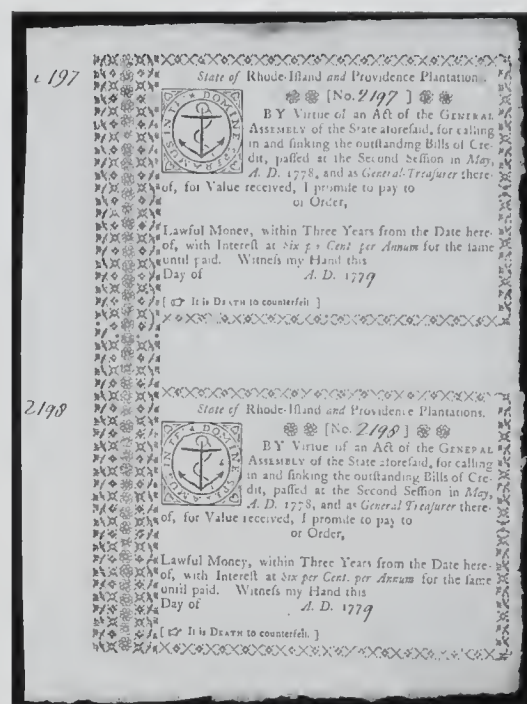 197
State of Rhode-Iſland and Providence Plantation .
[No. 2197 ]
IN TE DOMINE SPERAMUS
BY Virtue of an Act of the GENERAL
ASSEMBLY of the State aforeſaid, for calling
in and ſinking the outſtanding Bills of Cre-
dit, paſſed at the Second Seſſion in May,
A. D. 1778, and as General-Treaſurer there-
of, for Value received, I promiſe to pay to
or Order,
Lawful Money, within Three Years from the Date here-
of, with Intereſt at Six per Cent per Annum for the ſame
until paid. Witneſs my Hand this
Day of A. D. 1779
[ ☞ It is DEATH to counterfeit. ]
2198
State of Rhode-Iſland and Providence Plantations.
[No. 2198 ]
IN TE DOMINE SPERAMUS
BY Virtue of an Act of the GENERAL
ASSEMBLY of the State aforeſaid, for calling
in and ſinking the outſtanding Bills of Cre-
dit, paſſed at the Second Seſſion in May,
A. D. 1778, and as General Treaſurer there-
of, for Value received, I promiſe to pay to
or Order,
Lawful Money, within Three Years from the Date here-
of, with Intereſt at Six per Cent. per Annum for the ſame
until paid. Witneſs my Hand this
Day of A. D. 1779
[ ☞ It is DEATH to counterfeit. ]